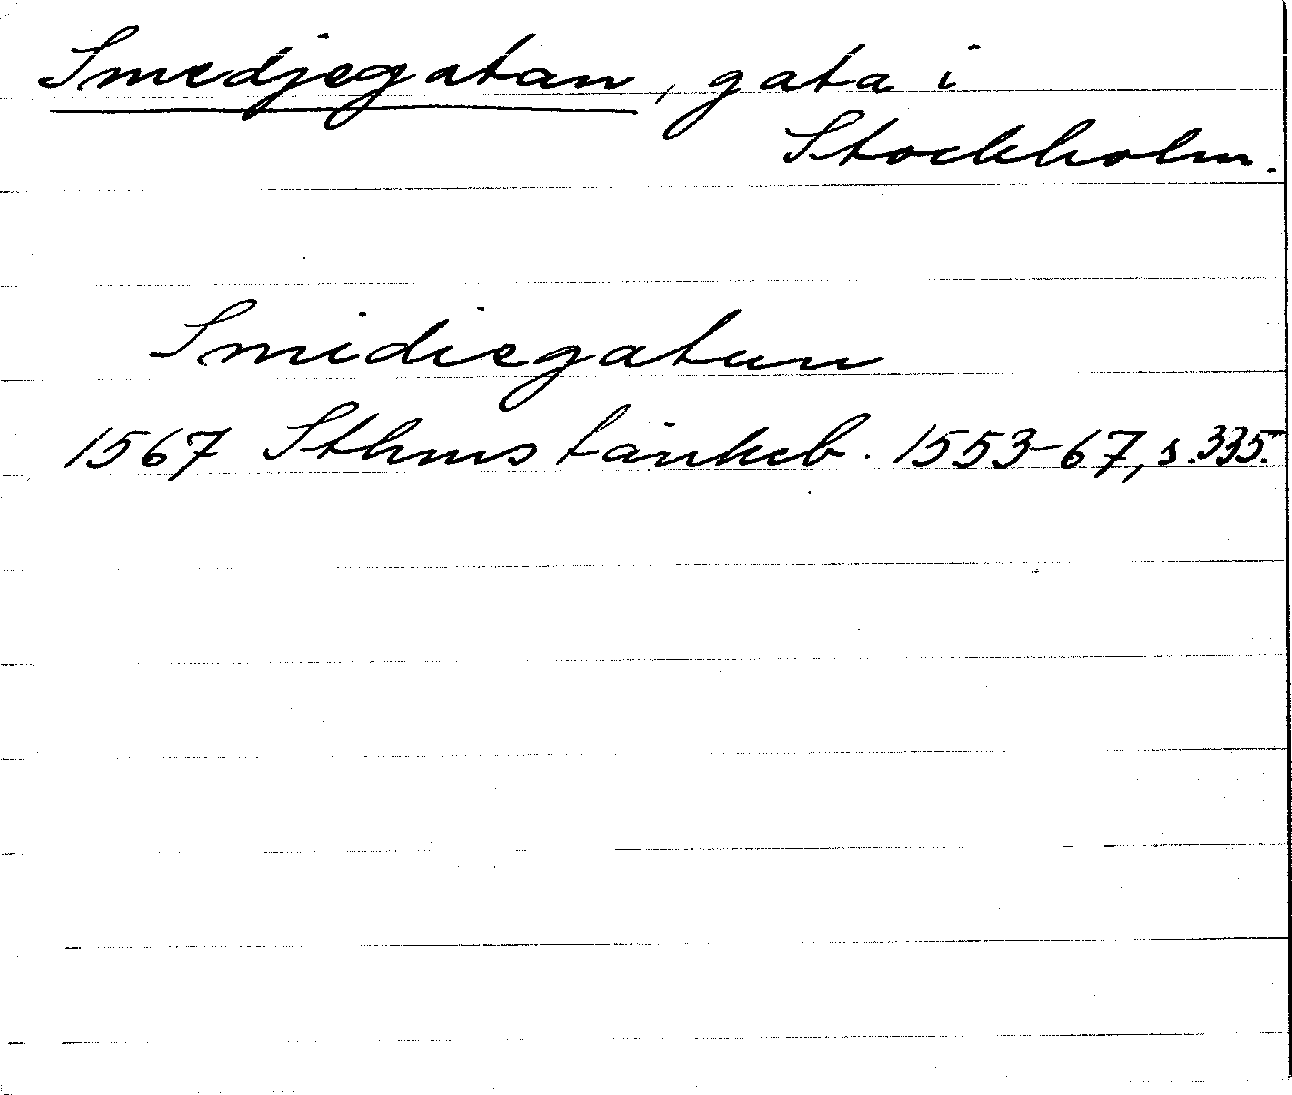 Smedjegatan, gata i
Stockholm.
Smidiegatun
1567 Sthms tänkeb. 1553-67, s. 335.